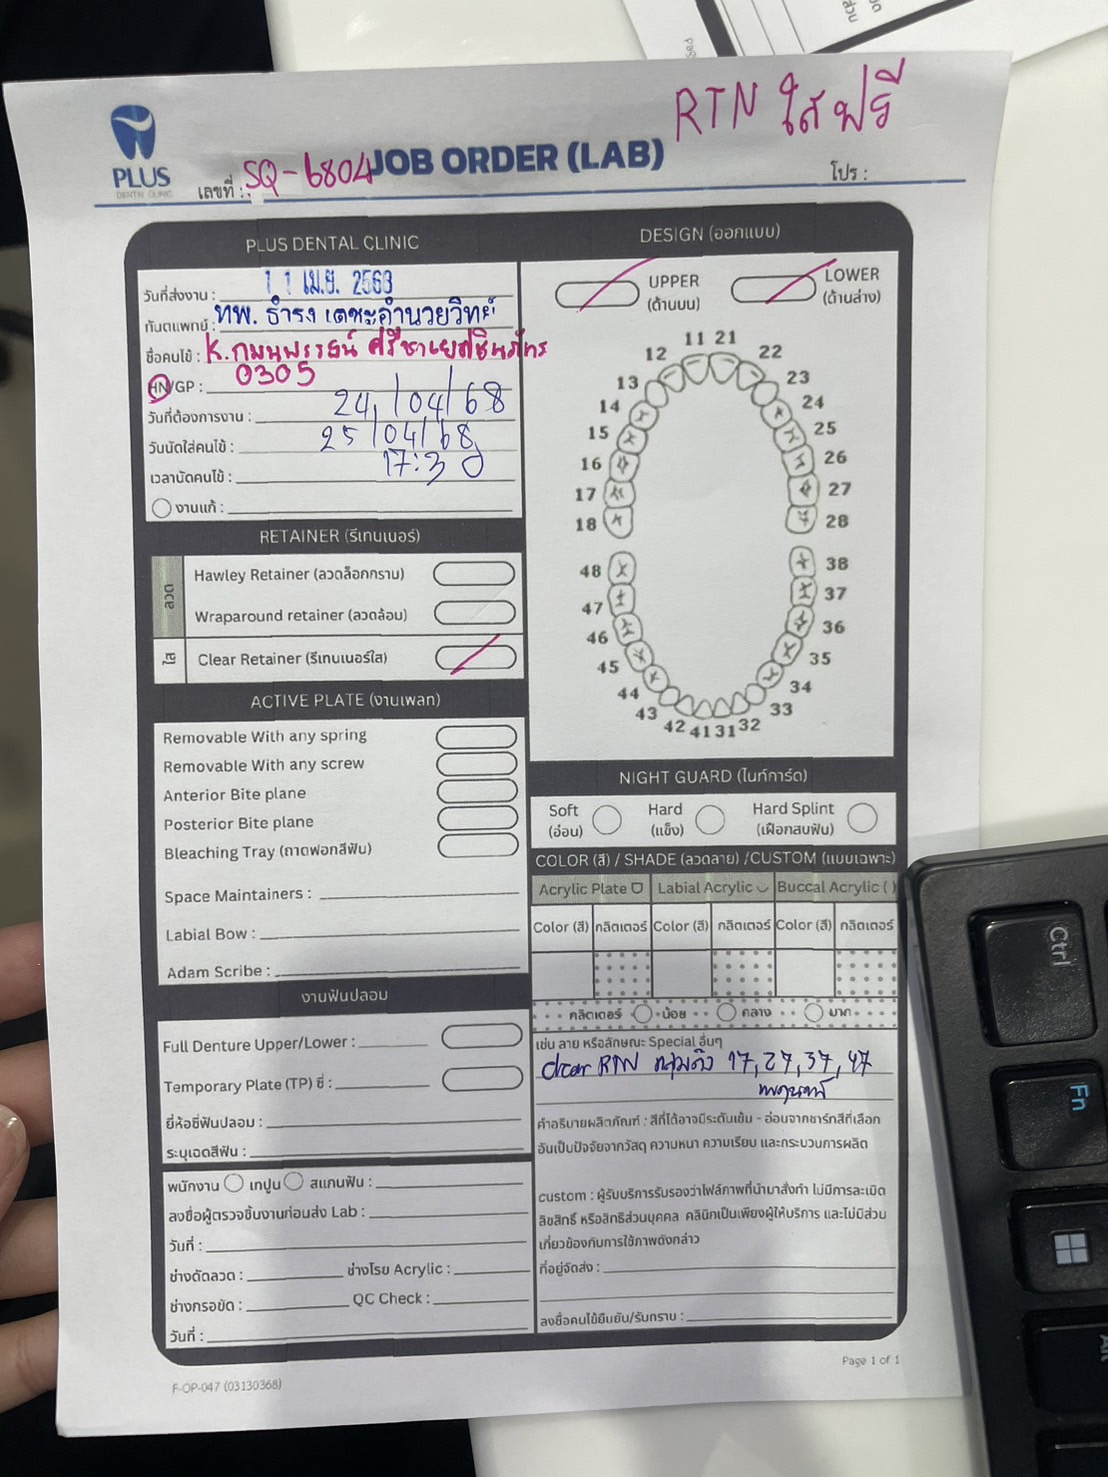 RTN ใสฟรี
PLUS
DENTAL CLINIC
JOB ORDER (LAB)
เลขที่ : SQ-6804
โปร :
PLUS DENTAL CLINIC
วันที่ส่งงาน : 11 เม.ย. 2568
ทันตแพทย์ : ทพ. ธำรง เตชะอำนวยวิทย์
ชื่อคนไข้ : K.
HN/GP : 0305
วันที่ต้องการงาน : 24/04/68
วันนัดใส่คนไข้ : 25/04/68
เวลานัดคนไข้ : 17:30
งานแก้ :
RETAINER (รีเทนเนอร์)
ลวด
Hawley Retainer (ลวดล็อกกราม)
Wraparound retainer (ลวดล้อม)
ใส
Clear Retainer (รีเทนเนอร์ใส)
ACTIVE PLATE (งานเพลท)
Removable With any spring
Removable With any screw
Anterior Bite plane
Posterior Bite plane
Bleaching Tray (ถาดฟอกสีฟัน)
Space Maintainers :
Labial Bow :
Adam Scribe :
งานฟันปลอม
Full Denture Upper/Lower :
Temporary Plate (TP) ซี่ :
ยี่ห้อซี่ฟันปลอม :
ระบุเฉดสีฟัน :
พนักงาน เทปูน สแกนฟัน :
ลงชื่อผู้ตรวจชิ้นงานก่อนส่ง Lab :
วันที่ :
ช่างดัดลวด : ช่างโรย Acrylic :
ช่างกรอขัด : QC Check :
วันที่ :
DESIGN (ออกแบบ)
UPPER
(ด้านบน)
LOWER
(ด้านล่าง)
11 21
12 22
13 23
14 24
15 25
16 26
17 27
18 28
48 38
47 37
46 36
45 35
44 34
43 33
42 41 31 32
NIGHT GUARD (ไนท์การ์ด)
Soft
(อ่อน)
Hard
(แข็ง)
Hard Splint
(เฝือกสบฟัน)
COLOR (สี) / SHADE (ลวดลาย) /CUSTOM (แบบเฉพาะ)
Acrylic Plate Labial Acrylic Buccal Acrylic ( )
Color (สี) กลิตเตอร์ Color (สี) กลิตเตอร์ Color (สี) กลิตเตอร์
กลิตเตอร์ น้อย กลาง มาก
เช่น ลาย หรือลักษณะ Special อื่นๆ
clear RTN คลุมถึง 17, 27, 37, 47
คำอธิบายผลิตภัณฑ์ : สีที่ได้อาจมีระดับเข้ม - อ่อนจากชาร์ทสีที่เลือก
อันเป็นปัจจัยจากวัสดุ ความหนา ความเรียบ และกระบวนการผลิต
custom : ผู้รับบริการรับรองว่าไฟล์ภาพที่นำมาสั่งทำ ไม่มีการละเมิด
ลิขสิทธิ์ หรือสิทธิส่วนบุคคล คลินิกเป็นเพียงผู้ให้บริการ และไม่มีส่วน
เกี่ยวข้องกับการใช้ภาพดังกล่าว
ที่อยู่จัดส่ง :
ลงชื่อคนไข้ยืนยัน/รับทราบ :
Page 1 of 1
F-OP-047 (03130368)
Ctrl
Fn